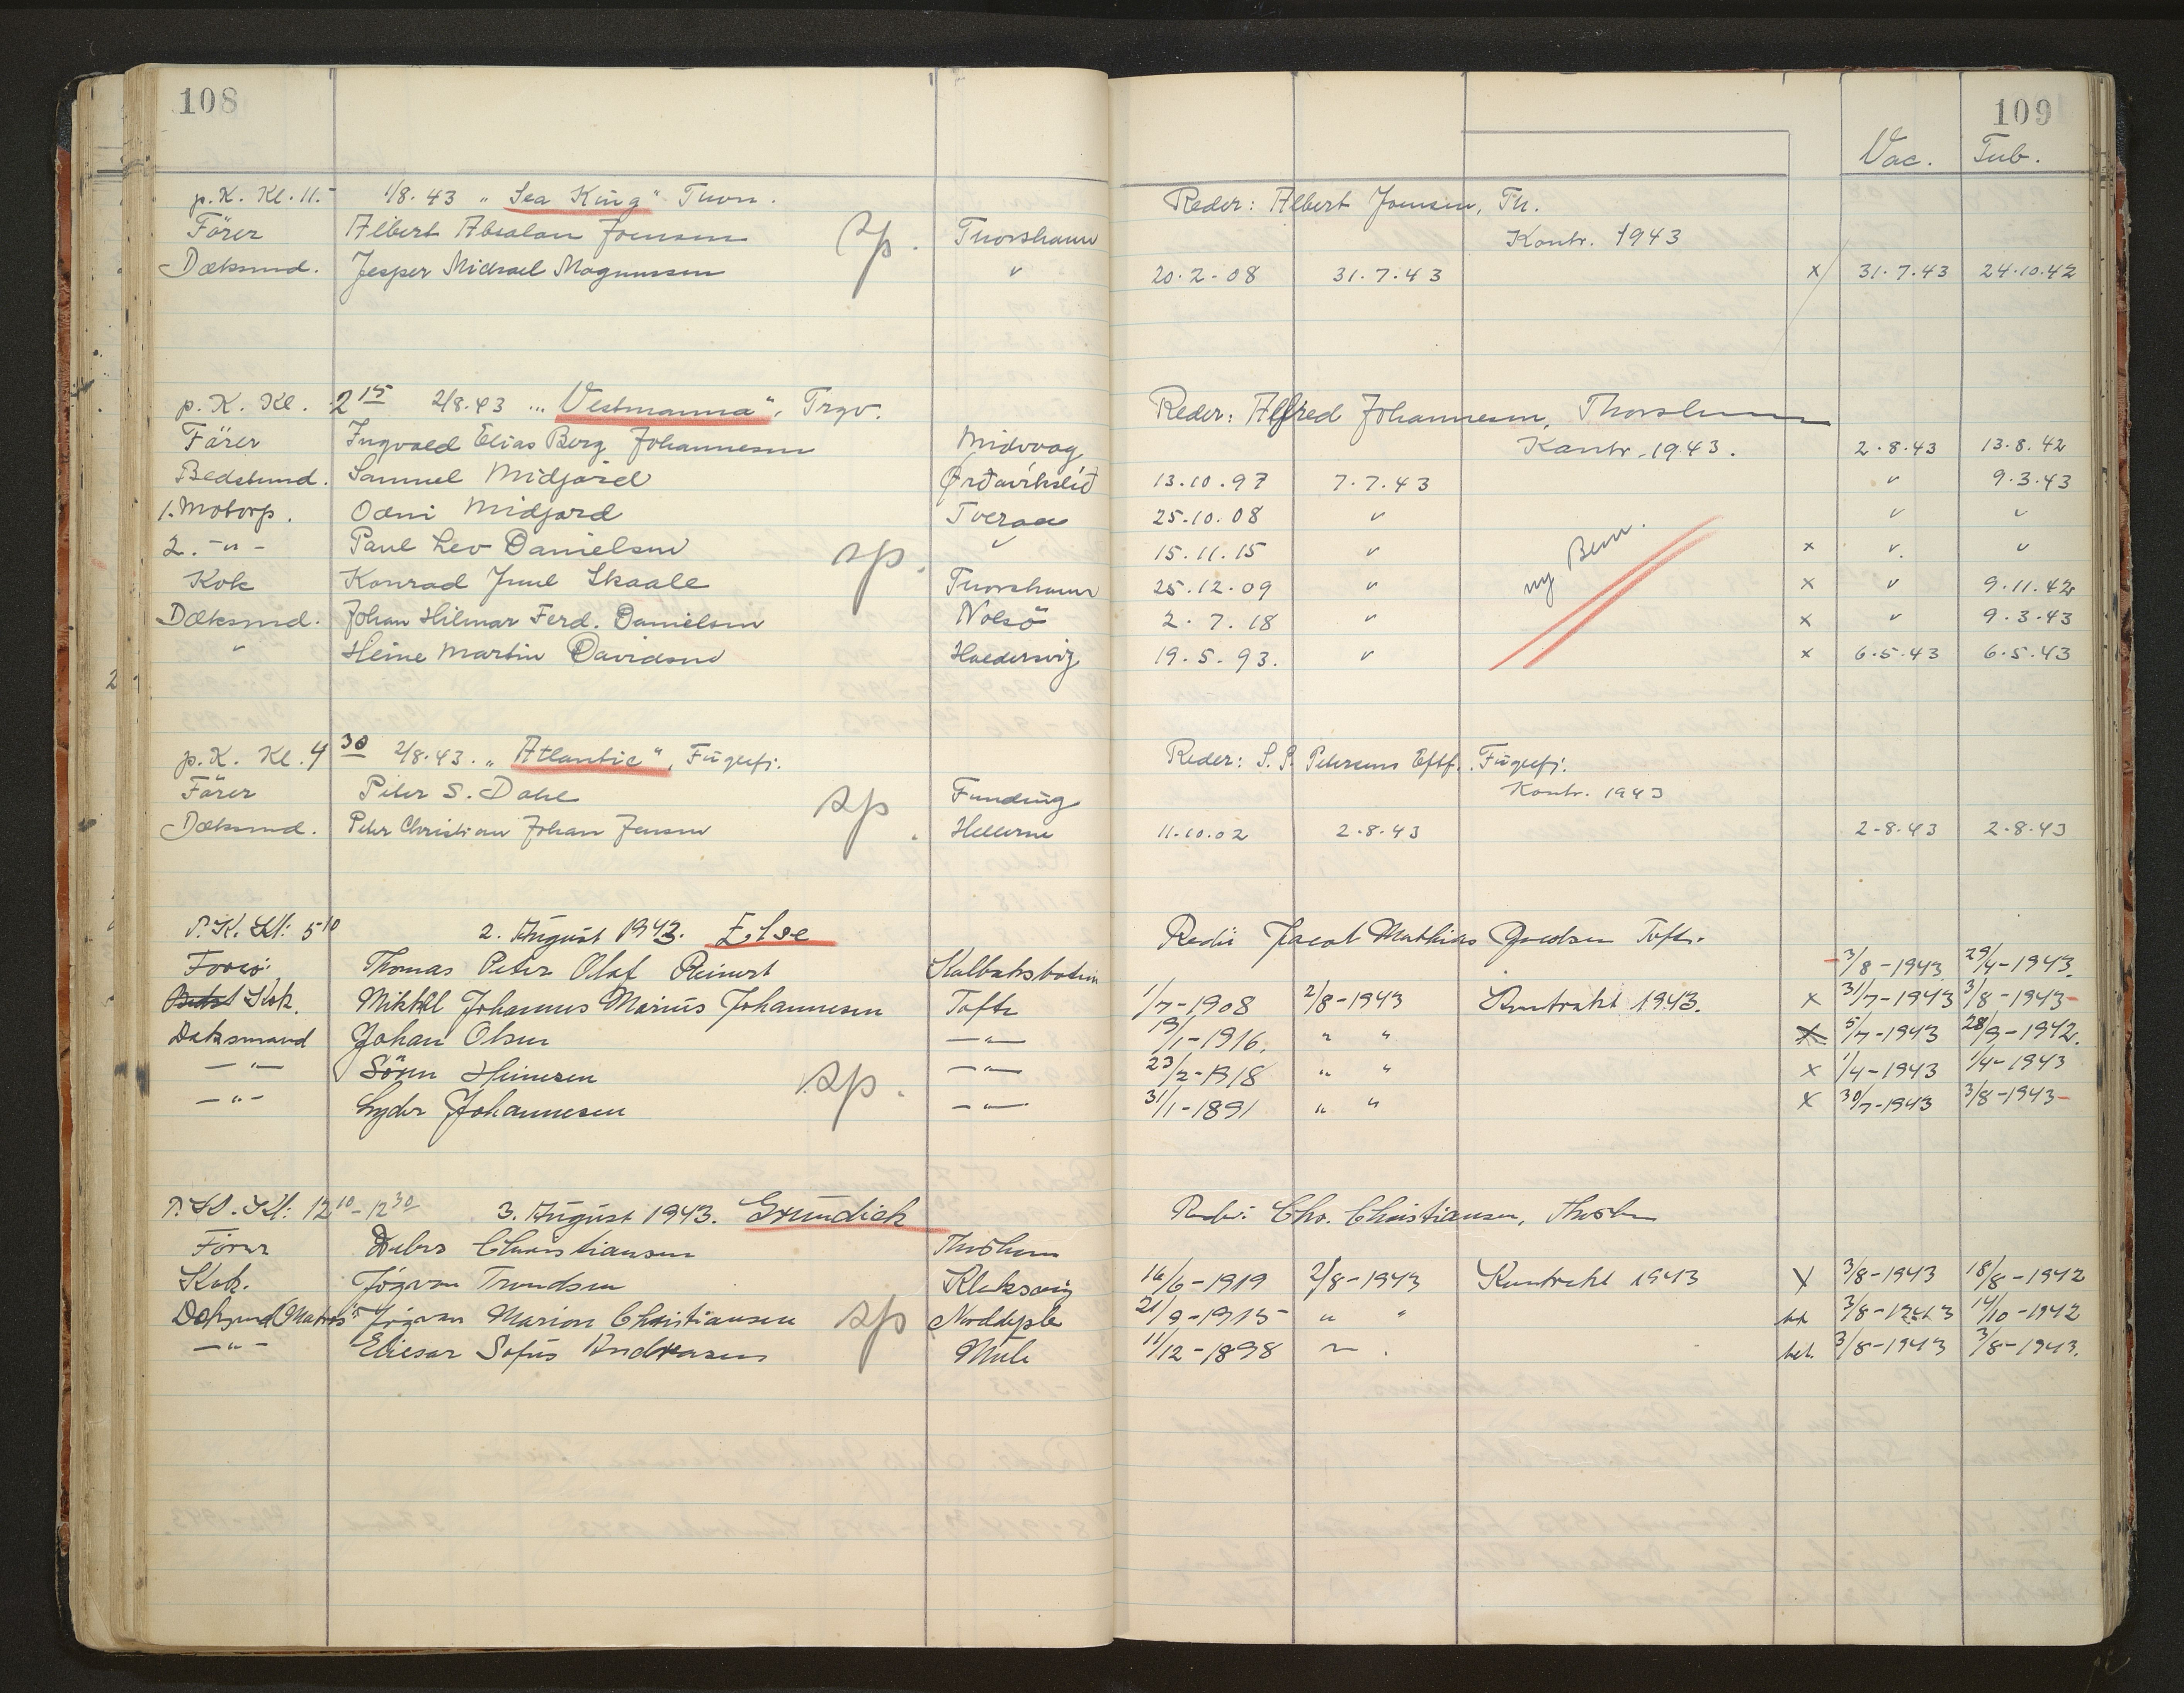 108
109
Vac. Tub.
p.K. Kl. 11.- 1/8.43 „Sea King“ Thorn. Reder: Albert Joensen, Th.
Förer Albert Absalon Joensen sp. Thorshavn Kontr. 1943
Dæksmd. Jesper Michael Magnussen " 20.2-08 31.7.43 x 31.7.43 24.10.42
p.K. Kl. 2 15 2/8.43 „Vestmanna“, Trgv. Reder: Alfred Johannesen, Thorshavn
Förer Ingvald Elias Berg Johannesen Midvaag Kontr. 1943. 2.8.43 13.8.42
Bedstmd. Samuel Midjord Ørðavíkslíð 13.10.97 7.7.43 " 9.3.43
1. Motorp. Odni Midjord Tveraa 25.10.08 " " "
2. -"- Paul Lev Danielsen sp. " 15.11.15 " ny Bem. x " "
Kok Konrad Juul Skaale Thorshavn 25.12.09 " x " 9.11.42
Dæksmd. Johan Hilmar Ferd. Danielsen Nolsö 2.7.18 " x " 9.3.43
" Heine Martin Davidsen Haldersvig 19.5.93. " x 6.5.43 6.5.43
p.K. Kl. 4 30 2/8.43. „Atlantic“, Fuglefj. Reder: S.P. Petersens Eftf. Fuglefj.
Förer Peter S. Dahl sp. Funding Kontr. 1943
Dæksmd. Peter Christian Johan Jensen Hellerne 11.10.02 2.8.43 2-8.43 2.8.43
P.K. Kl: 5 10 2. August 1943. Else Reder Jacob Mathias Jacobsen Tofte.
Förer Thomas Peter Olaf Reinert Kalbaksbotn 3/8-1943 29/4-1943.
Bedst Kok. Mikkel Johannes Marius Johannesen Tofte 1/7-1908 2/8-1943 Kontrakt 1943. x 31/7-1943 3/8-1943-
Daksmand Johan Olsen -"- 19/1-1916. " " x 5/7-1943 28/9-1942.
-"- Sören Heinesen sp. -"- 23/2-1918 " " x 1/4-1943 1/4-1943
-"- Lyder Johannesen -"- 31/1-1891 " " x 30/7-1943 3/8-1943-
P.K. Kl: 12 10 - 12 30 3. August 1943. Grundick Reder: Chr. Christiansen, Thorshn
Förer Christiansen Thorshavn
Kok. Jógvan Trondsen Klaksvig 16/6-1919 2/8-1943 Kontrakt 1943 x 3/8-1943 18/8-1942
Daksmd (Matros) Jógvan Marion Christiansen sp Norddeple 21/9-1915 " " 3/8-1943 14/10-1942
-"- Eliesar Sofus Andreasen Mule 11/12-1898 " bet. 3/8-1943 3/8-1943.